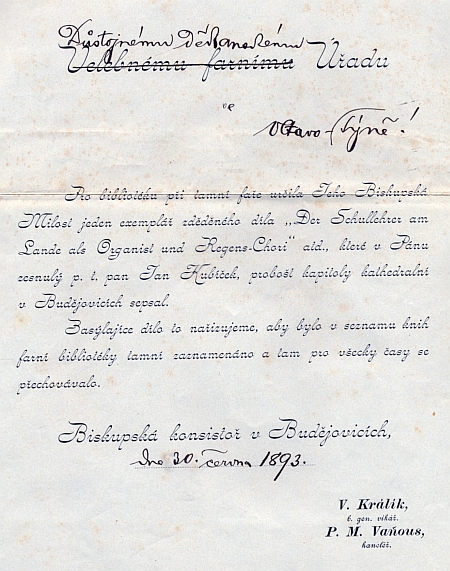 Důstojnému Děkanskému
Velebnému farnímu Úřadu
ve
Vltavo-Týně!
Pro bibliotéku při tamní faře určila Jeho Biskupská
Milosť jeden exemplář zděděného díla „Der Schullehrer am
Lande als Organist und Regens-Chori“ atd., které v Pánu
zesnulý p. t. pan Jan Kubíček, probošt kapitoly kathedralní
v Budějovicích sepsal.
Zasýlajíce dílo to nařizujeme, aby bylo v seznamu knih
farní bibliotéky tamní zaznamenáno a tam pro všecky časy se
přechovávalo.
Biskupská konsistoř v Budějovicích,
dne 30. června 1893.
V. Králik,
b. gen. vikář.
P. M. Vaňous,
kancléř.